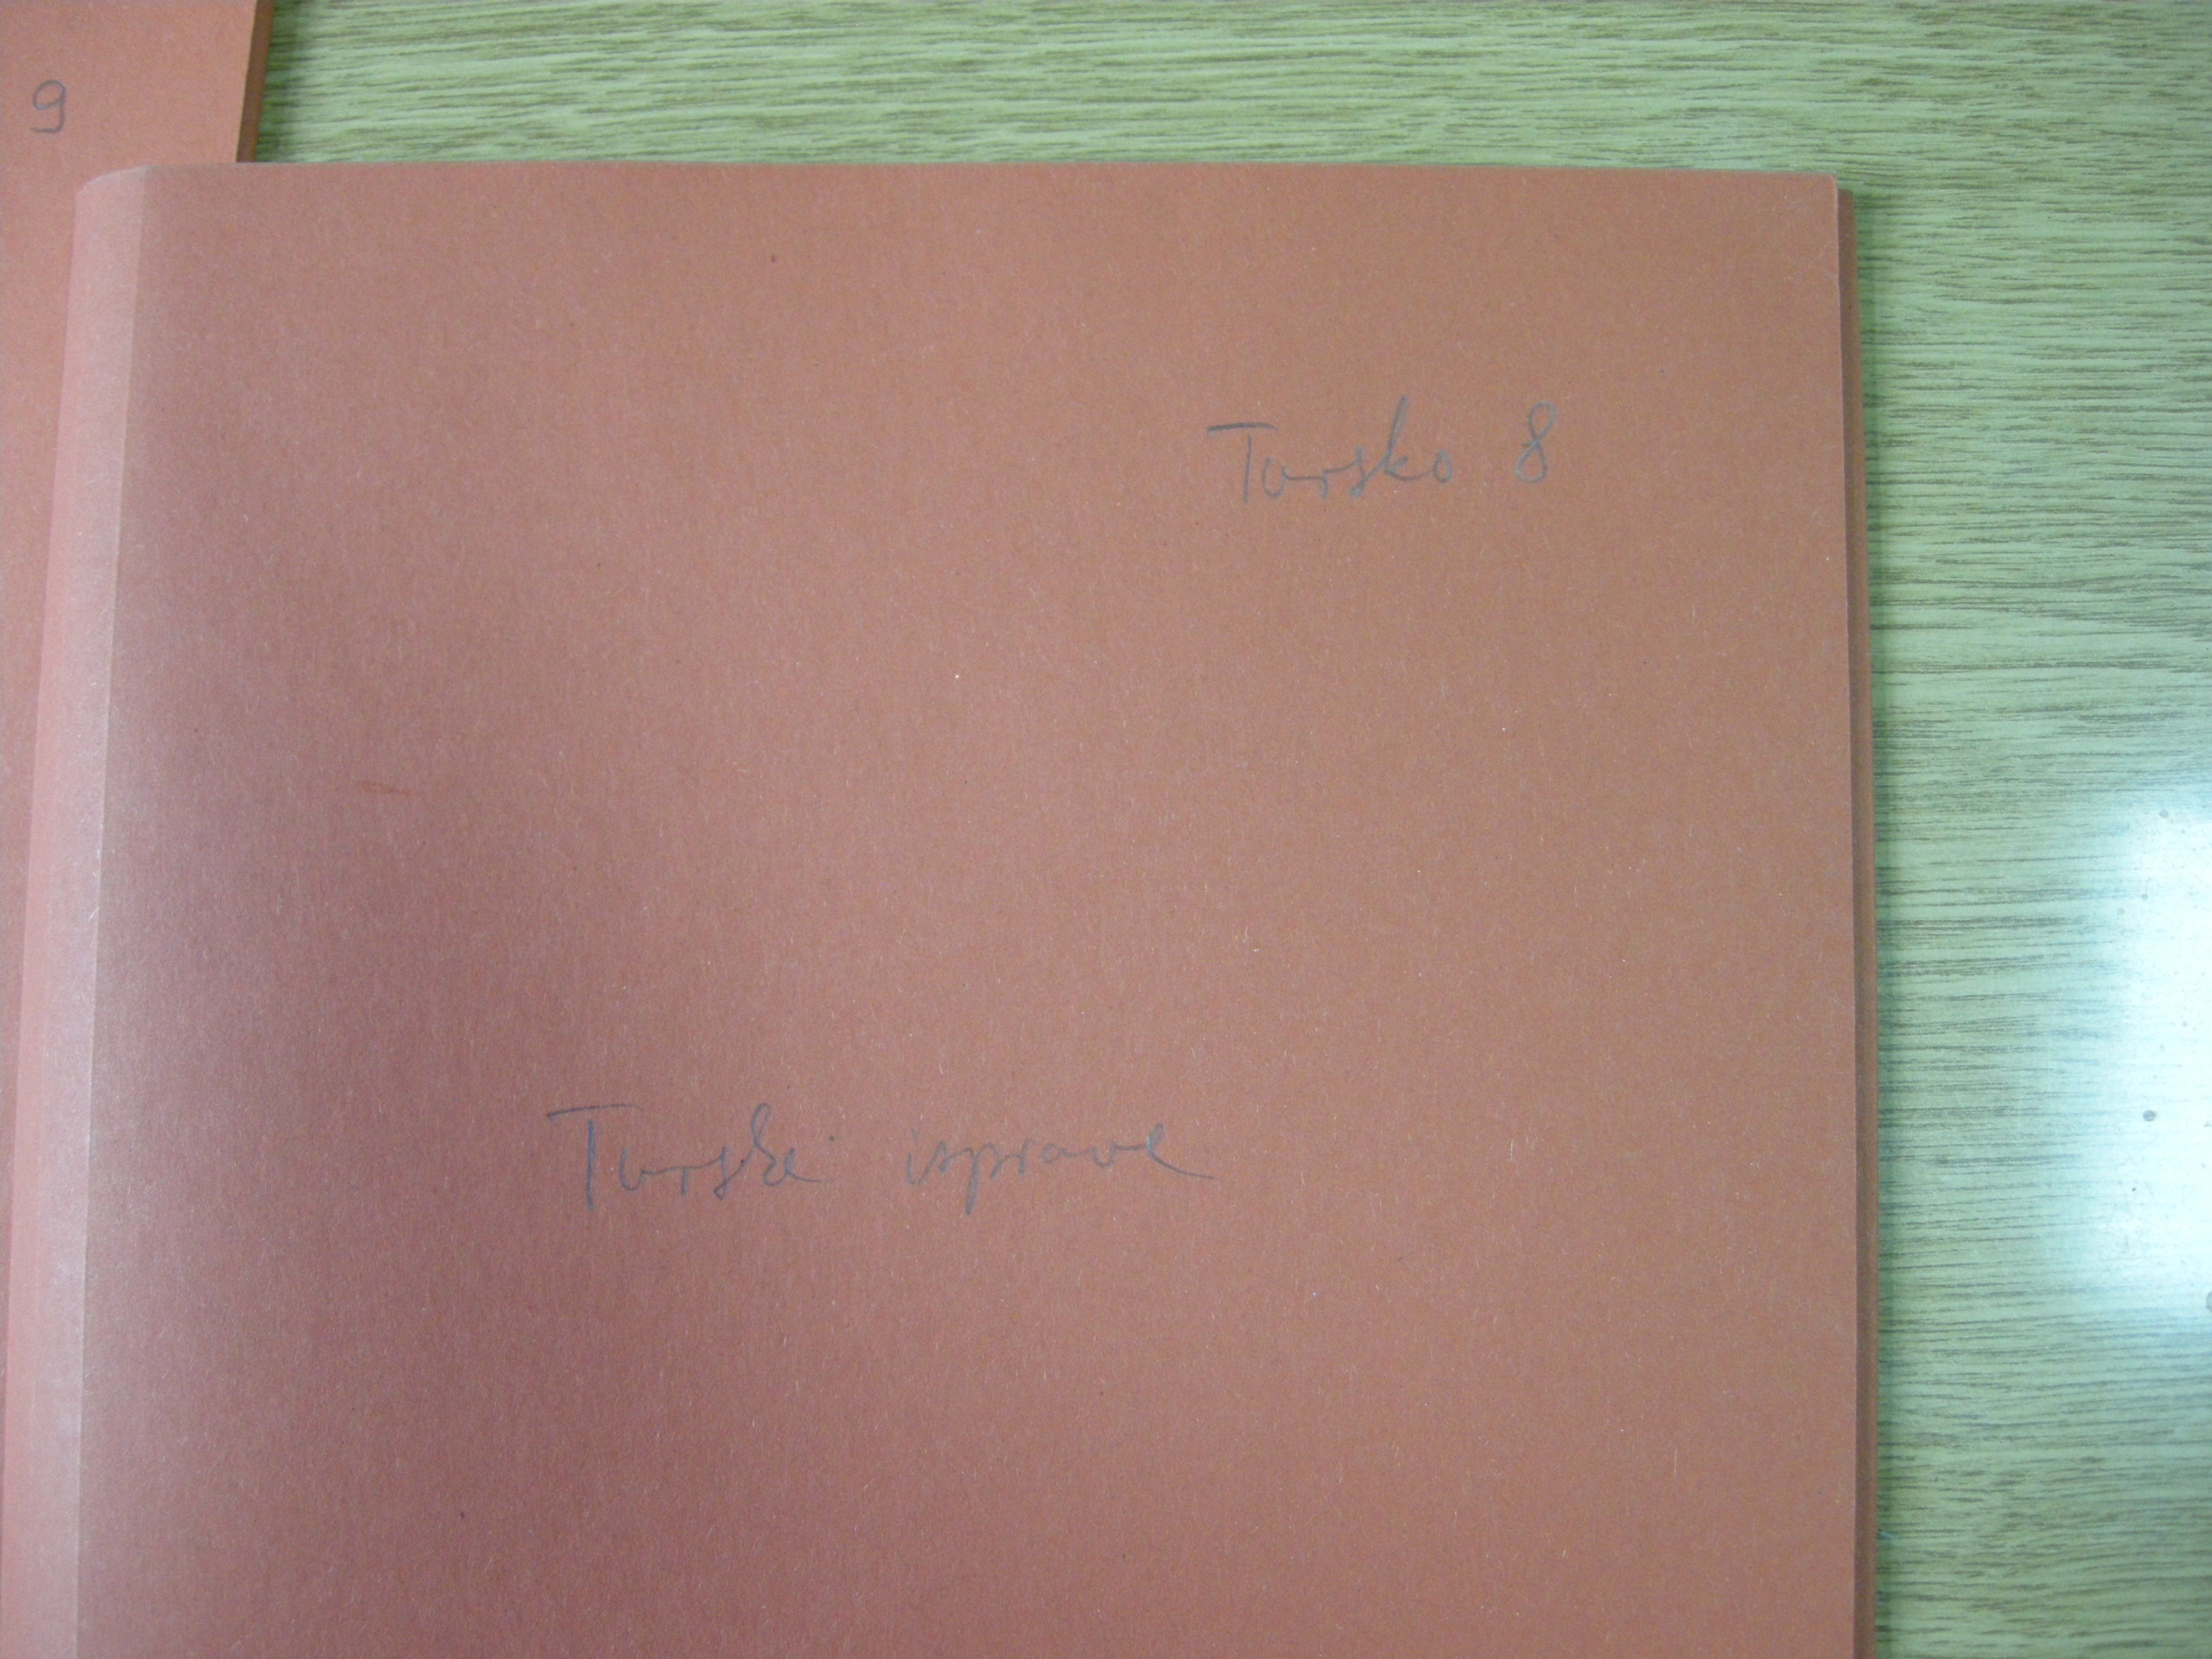 9
Tursko 8
Turske isprave